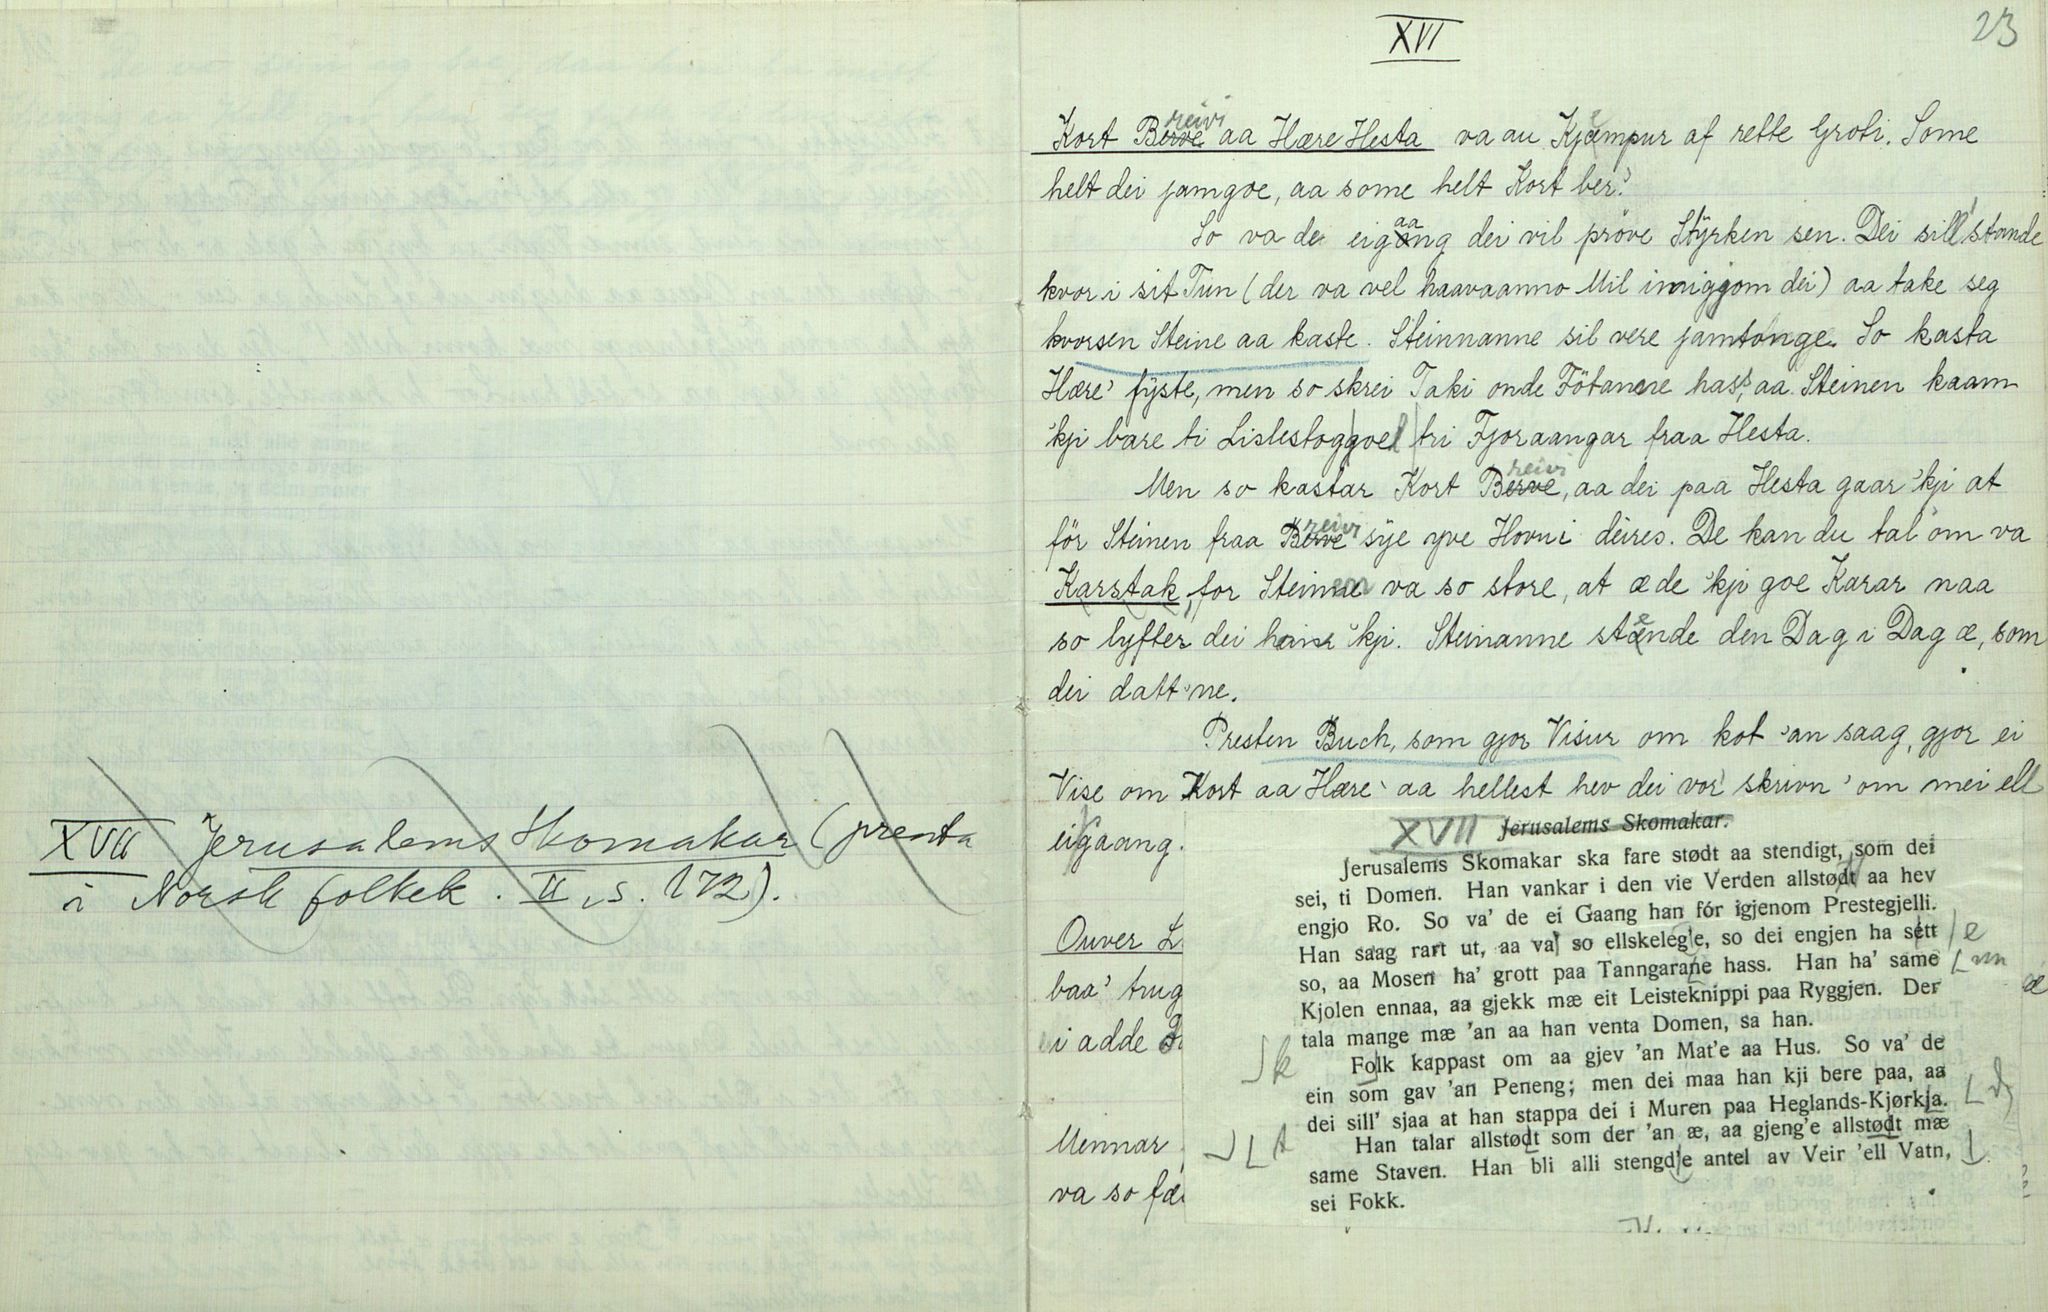 XVII Jerusalems Skomakar (prenta
i Norsk folkek. II, s. 172).
XVI
23
Kort Berve reivi aa Hære Hesta va au Kjæmpur af rette Groti. Some
helt dei jamgoe, aa some helt Kort ber'.
So va de eigaang dei vil prøve Styrken sen. Dei sill' stande
kvor i sit Tun (der va vel haavaanno Mil imiggjom dei) aa take seg
kvorsen Steine aa kaste. Steinnanne sil vere jamtonge. So kasta
Hære' fyste, men so skrei Taki onde Fötanne hass, aa Steinen kaam
'kji bare ti Lislestoggoel tri Fjoraangar fraa Hesta.
Men so kastar Kort Berve reivi, aa dei paa Hesta gaar 'kji at
för Steinen fraa Berve reivi sye yve Hovui deires. De kan du tal' om va
Karstak, for Steinen va so store, at æ de 'kji goe Karar naa
so lyfter dei han 'kji. Steinanne stænde den Dag i Dag æ, som
dei datt 'ne.
Presten Buch, som gjor Visur om kot 'an saag, gjor ei
Vise om Kort aa Hære' aa hellest hev dei vor' skrivn' om mei ell
eigaang.
Ouver
baa' trug
i adde
Mennar
va so
æ
XVII Jerusalems Skomakar.
Jerusalems Skomakar ska fare stødt aa stendigt, som dei
sei, ti Domen. Han vankar i den vie Verden allstødt aa hev
engjo Ro. So va' de ei Gaang han fór igjenom Prestegjelli.
Han saag rart ut, aa va' so ellskeleg'e, so dei engjen ha sett e
so, aa Mosen ha' grott paa Tanngarane hass. Han ha' same nn
Kjolen ennaa, aa gjekk mæ eit Leisteknippi paa Ryggjen. Der
tala mange mæ 'an aa han venta Domen, sa han.
k Folk kappast om aa gjev 'an Mat'e aa Hus. So va' de
ein som gav 'an Peneng; men dei maa han kji bere paa, aa
dei sill' sjaa at han stappa dei i Muren paa Heglands-Kjørkja.
t Han talar allstødt som der 'an æ, aa gjeng'e allstødt mæ
same Staven. Han bli alli stengd'e antel av Veir 'ell Vatn,
sei Fokk.